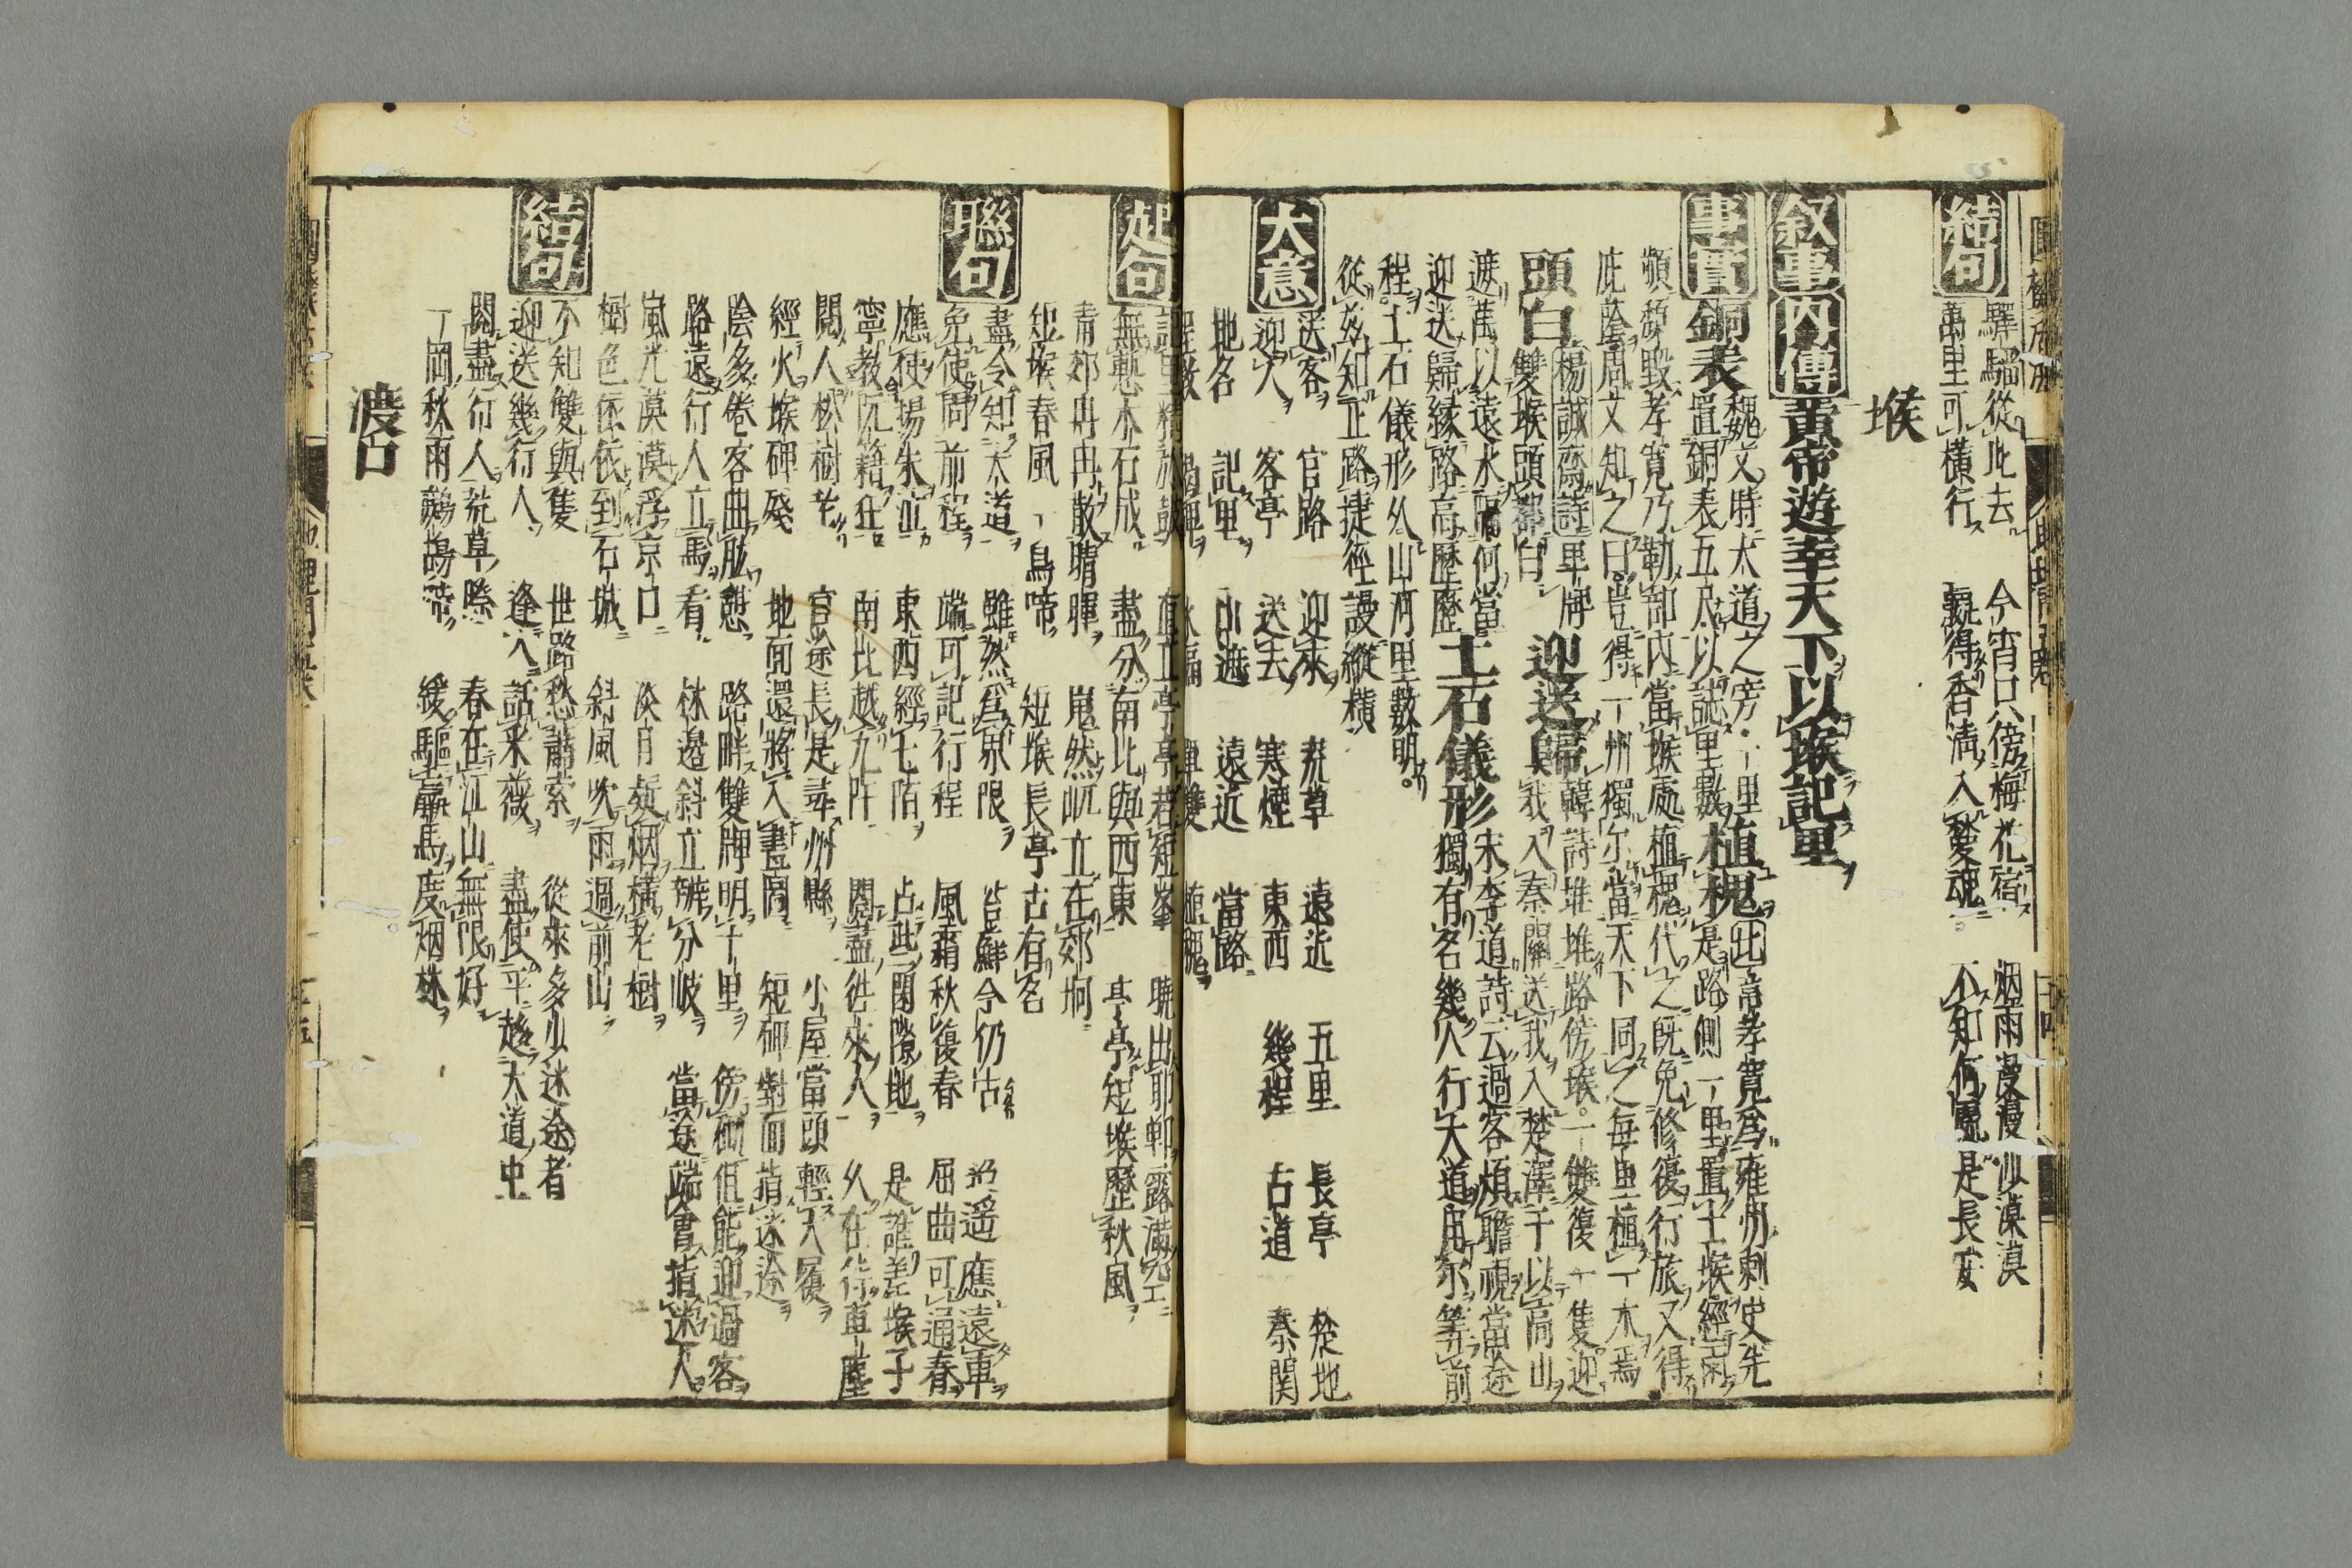 結句
驛驅從此去 今宵只傍梅花宿 烟雨漫漫沙漠漠
萬里可橫行 得香清入夢魂 不知何處是長安
堠
叙事 內傳 黃帝遊幸天下以堠記里
事實 銅表 魏文時大道之旁一里
置銅表五尺以誌里數 植槐 北帝孝寬爲雍州刺史先
是路側一里置土堠經雨
頽毀孝寬乃勒部內當堠處植槐代之既免修復行旅又得
庇蔭周文知之曰豈得一州獨尔當天下同之每里植一木焉
頭白 楊誠齋詩里牌
雙堠頭都白 迎送歸 韓詩堆堆路傍堠一雙復一隻迎
我入秦關送我入楚澤千以高山
遮萬以遠水隔何當
迎送歸緣路高歷歷 土石儀形 宋李道詩云過客煩瞻視當途
獨有名幾人行大道用尔筭前
程土石儀形久山河里數明
從玆知正路捷徑謾縱橫
大意
送客 官路 迎來 荒草 遠近 五里 長亭 楚地
迎人 客亭 送去 寒煙 東西 幾程 古道 秦関
地名 記里 山遮 遠近 當路
起句
無慙木石成 盡分南北與西東 亭亭短堠歷秋風
青郊冉冉散晴暉 嵬然屹立在郊坰
短堠春風一鳥啼 短堠長亭古有名
聯句
盡令知大道 雖然爲界限 豈鮮今仍古 迢遥應遠車
免使問前程 端可記行程 風霜秋復春 屈曲可通春
應使揚朱泣 東西經七陌 占此閑隙地 是誰差堠子
寧教阮籍狂 南北越九阡 閱盡往來人 久在待車塵
閱人松樹老 官途長是尋州縣 小屋當頭輕大履
經火堠碑殘 地面還將入畫圖 短碑對面指迷途
陰多倦客曲肱憩 路畔雙牌明十里 傍樹但能迎過客
路遠行人立馬看 林邊斜立辨分岐 當途端會指迷人
嵐光漠漠浮京口 淡月疑烟橫老樹
樹色依依到石城 斜風吹雨過前山
結句
不知雙與隻 世路愁蕭索 從來多少迷途者
迎送幾行人 逢人話采薇 盡使平趍大道中
閱盡行人荒草際 春在江山無限好
一岡秋雨鷓鴣啼 緩驅羸馬度烟林
渡口